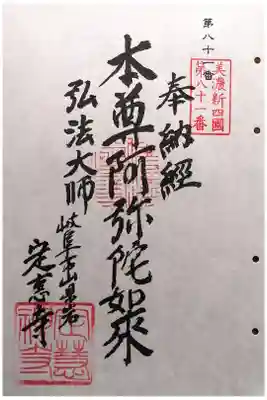 第八十一番
美濃新四國
第八十一番
奉納經
本尊阿弥陀如来
弘法大師
岐阜市山県岩
定恵寺